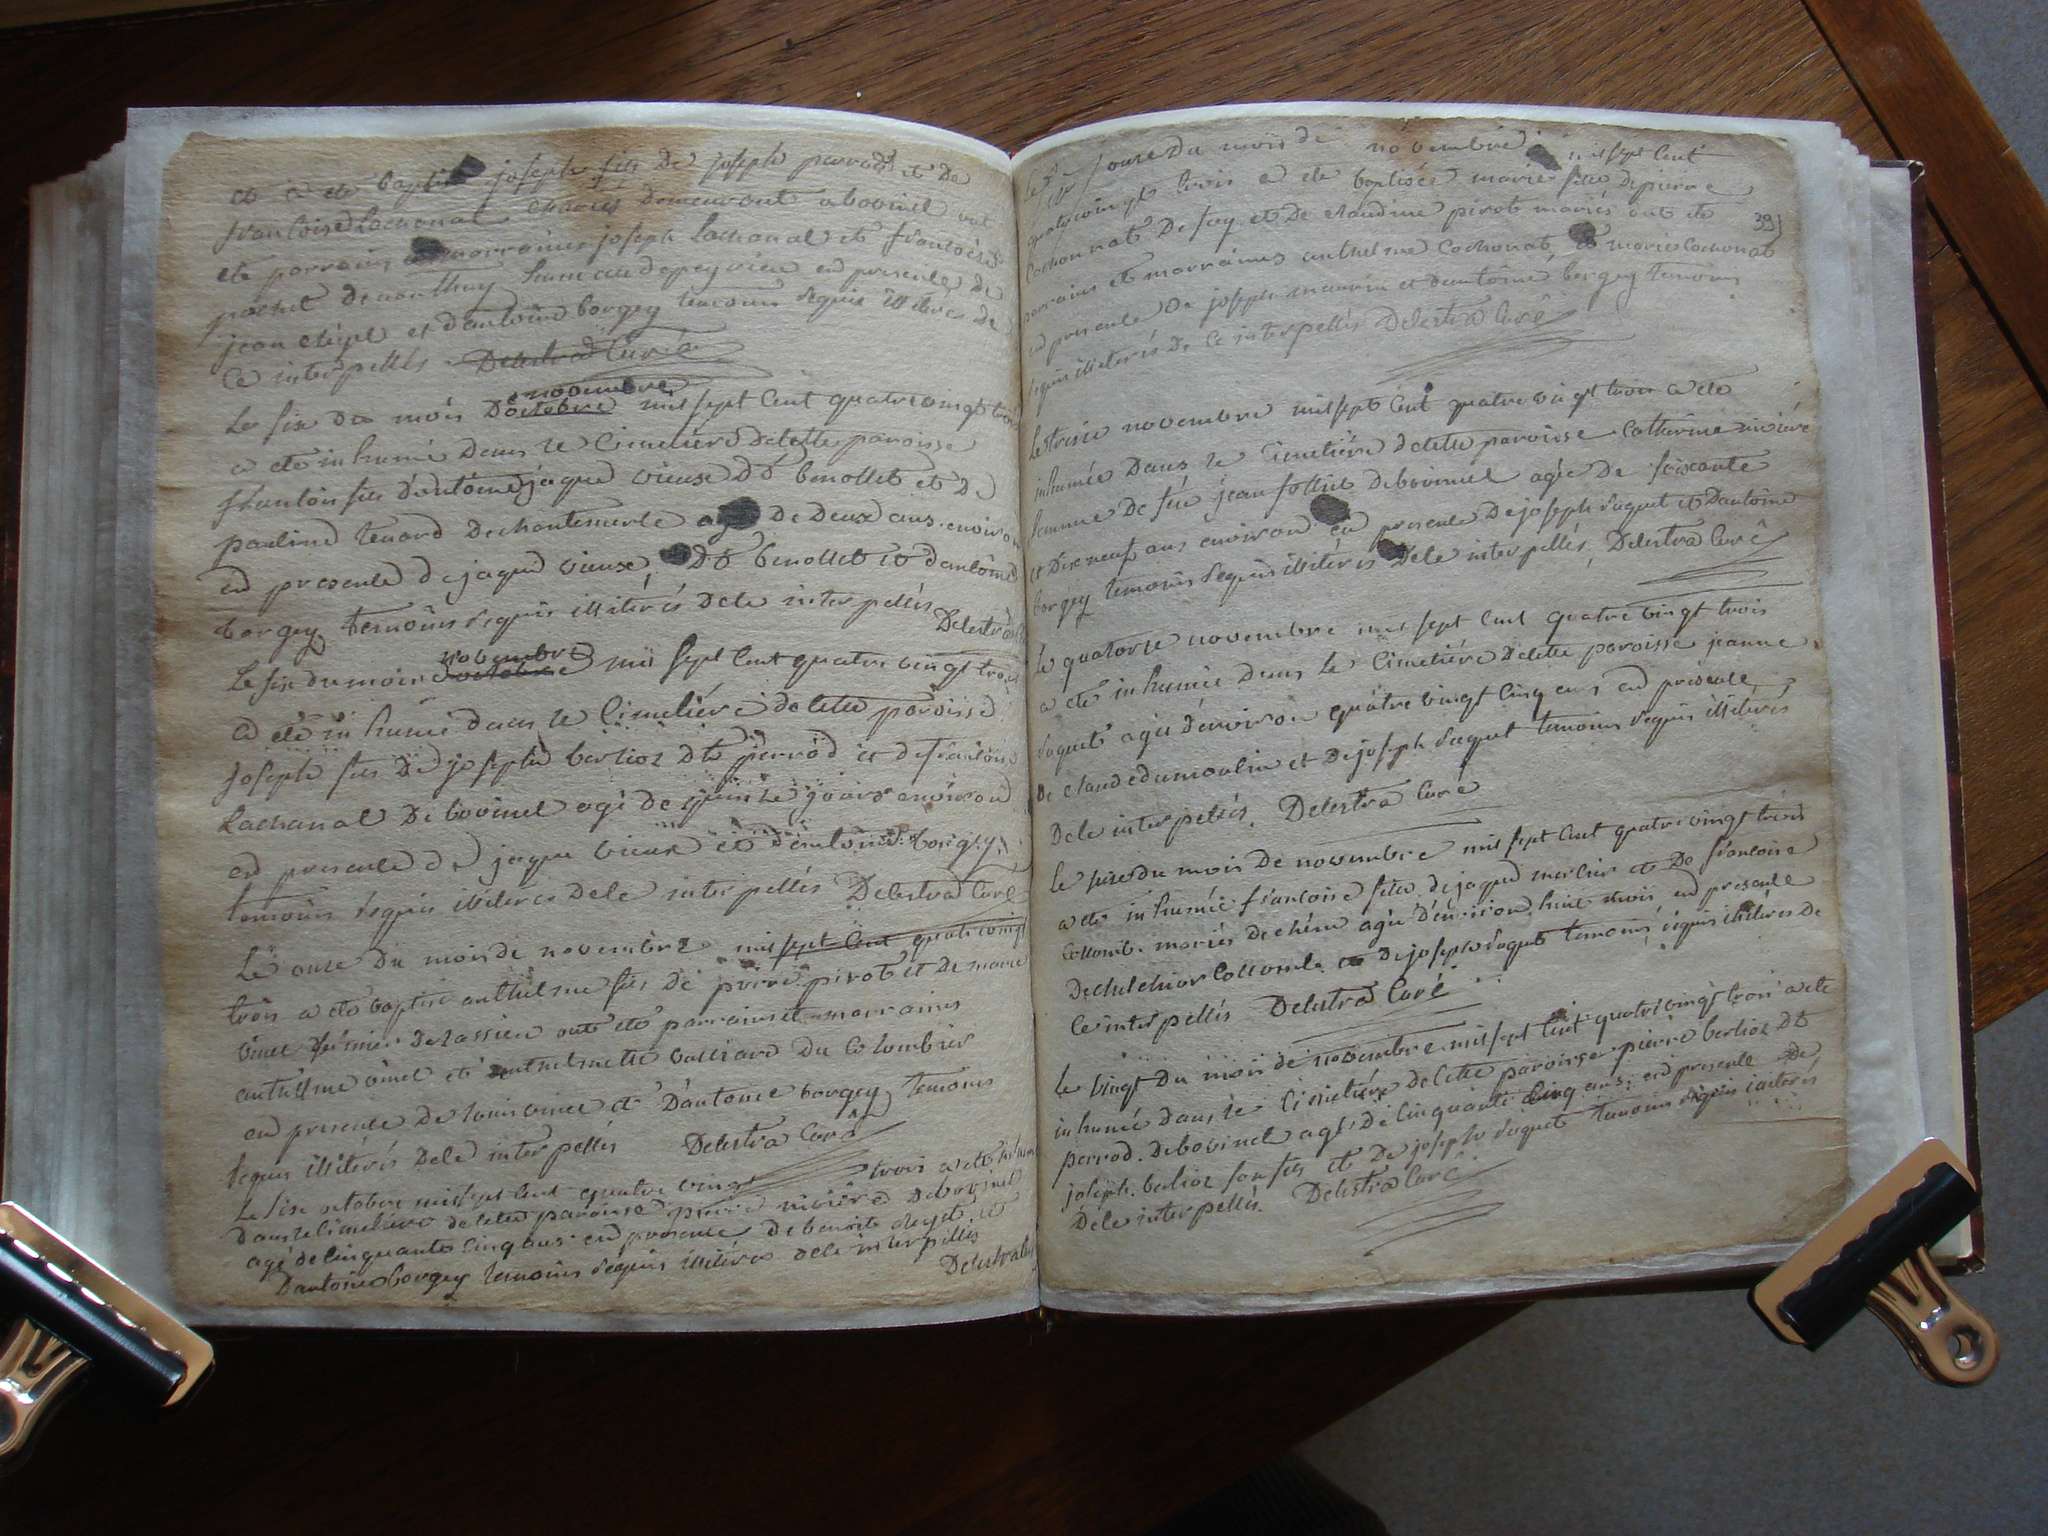 a eté baptisé joseph fils de joseph parrad et de
francoise Lachanal mariés demeurant a bovinel ont
eté parrains et marraines joseph Lachanal et francoise
en presence de
jean et d'antoine borgey temoins requis illiterés de
ce interpellés Delestra Curé
Le six du mois d'octobre novembre mil sept cent quatre vingt trois
a eté inhumé dans le Cimetiére de cette paroisse
francois fils d'antoine jaque vieux dt benollet et de
pauline tenard de chantemerle agé de deux ans environ
en presence de jaque vieux dt benollet et d'antoine
borgey temoins requis illiterés de ce interpellés Delestra
Le six du mois d'octobre novembre mil sept cent quatre vingt trois
a eté inhumé dans le Cimetiére de cette paroisse
joseph fils de joseph berlioz dt perrod et de francoise
Lachanal de bovinel agé de quinze jours environ
en presence de jaque vieux et d'antoine borgey
temoins requis illiterés de ce interpellés Delestra Curé
Le onze du mois de novembre mil sept cent quatre vingt
trois a eté baptisé anthelme fils de pierre pirot et de marie
vinet de lassieu ont eté parrains et marraines
anthelme vinet et anthelmette valliard du Colombier
en presence de louis vinet et d'antoine borgey temoins
requis illiterés de ce interpellés Delestra Curé
Le six octobre mil sept cent quatre vingt trois a eté inhumé
dans le Cimetiére de cette paroisse pierre miviére de bovinel
agé de cinquante cinq ans en presence de benoit et
d'antoine borgey temoins requis illiterés de ce interpellés
Delestra
391
Le douze du mois de novembre mil sept cent
quatre vingt trois a eté baptisée marie fille de pierre
Cochonat de fay et de claudine pirot mariés ont eté
parrains et marraines anthelme Cochonat et marie Cochonat
en presence de joseph maurin et d'antoine borgey temoins
requis illiterés de ce interpellés Delestra Curé
Le treize novembre mil sept cent quatre vingt trois a eté
inhumée dans le Cimetiére de cette paroisse Catherine miviére
femme de feu jean follict de bovinel agée de soixante
et dix neuf ans environ en presence de joseph saquet et d'antoine
borgey temoins requis illiterés de ce interpellés Delestra Curé
Le quatorze novembre mil sept cent quatre vingt trois
a eté inhumée dans le Cimetiére de cette paroisse jeanne
saquet agée d'environ quatre vingt cinq ans en presence
de claude dumoulin et de joseph saquet temoins requis illiterés
de ce interpellés Delestra Curé
Le seize du mois de novembre mil sept cent quatre vingt trois
a eté inhumée francoise fille de jaque mercier et de francoise
Collomb mariés de chéne agée d'environ huit mois en presence
de melchior Collomb et de joseph saquet temoins requis illiterés de
ce interpellés Delestra Curé
Le vingt du mois de novembre mil sept cent quatre vingt trois a eté
inhumé dans le Cimetiére de cette paroisse pierre berlioz dt
perrod de bovinel agé de cinquante cinq ans en presence de
joseph berlioz son fils et de joseph saquet temoins requis illiterés
de ce interpellés Delestra Curé